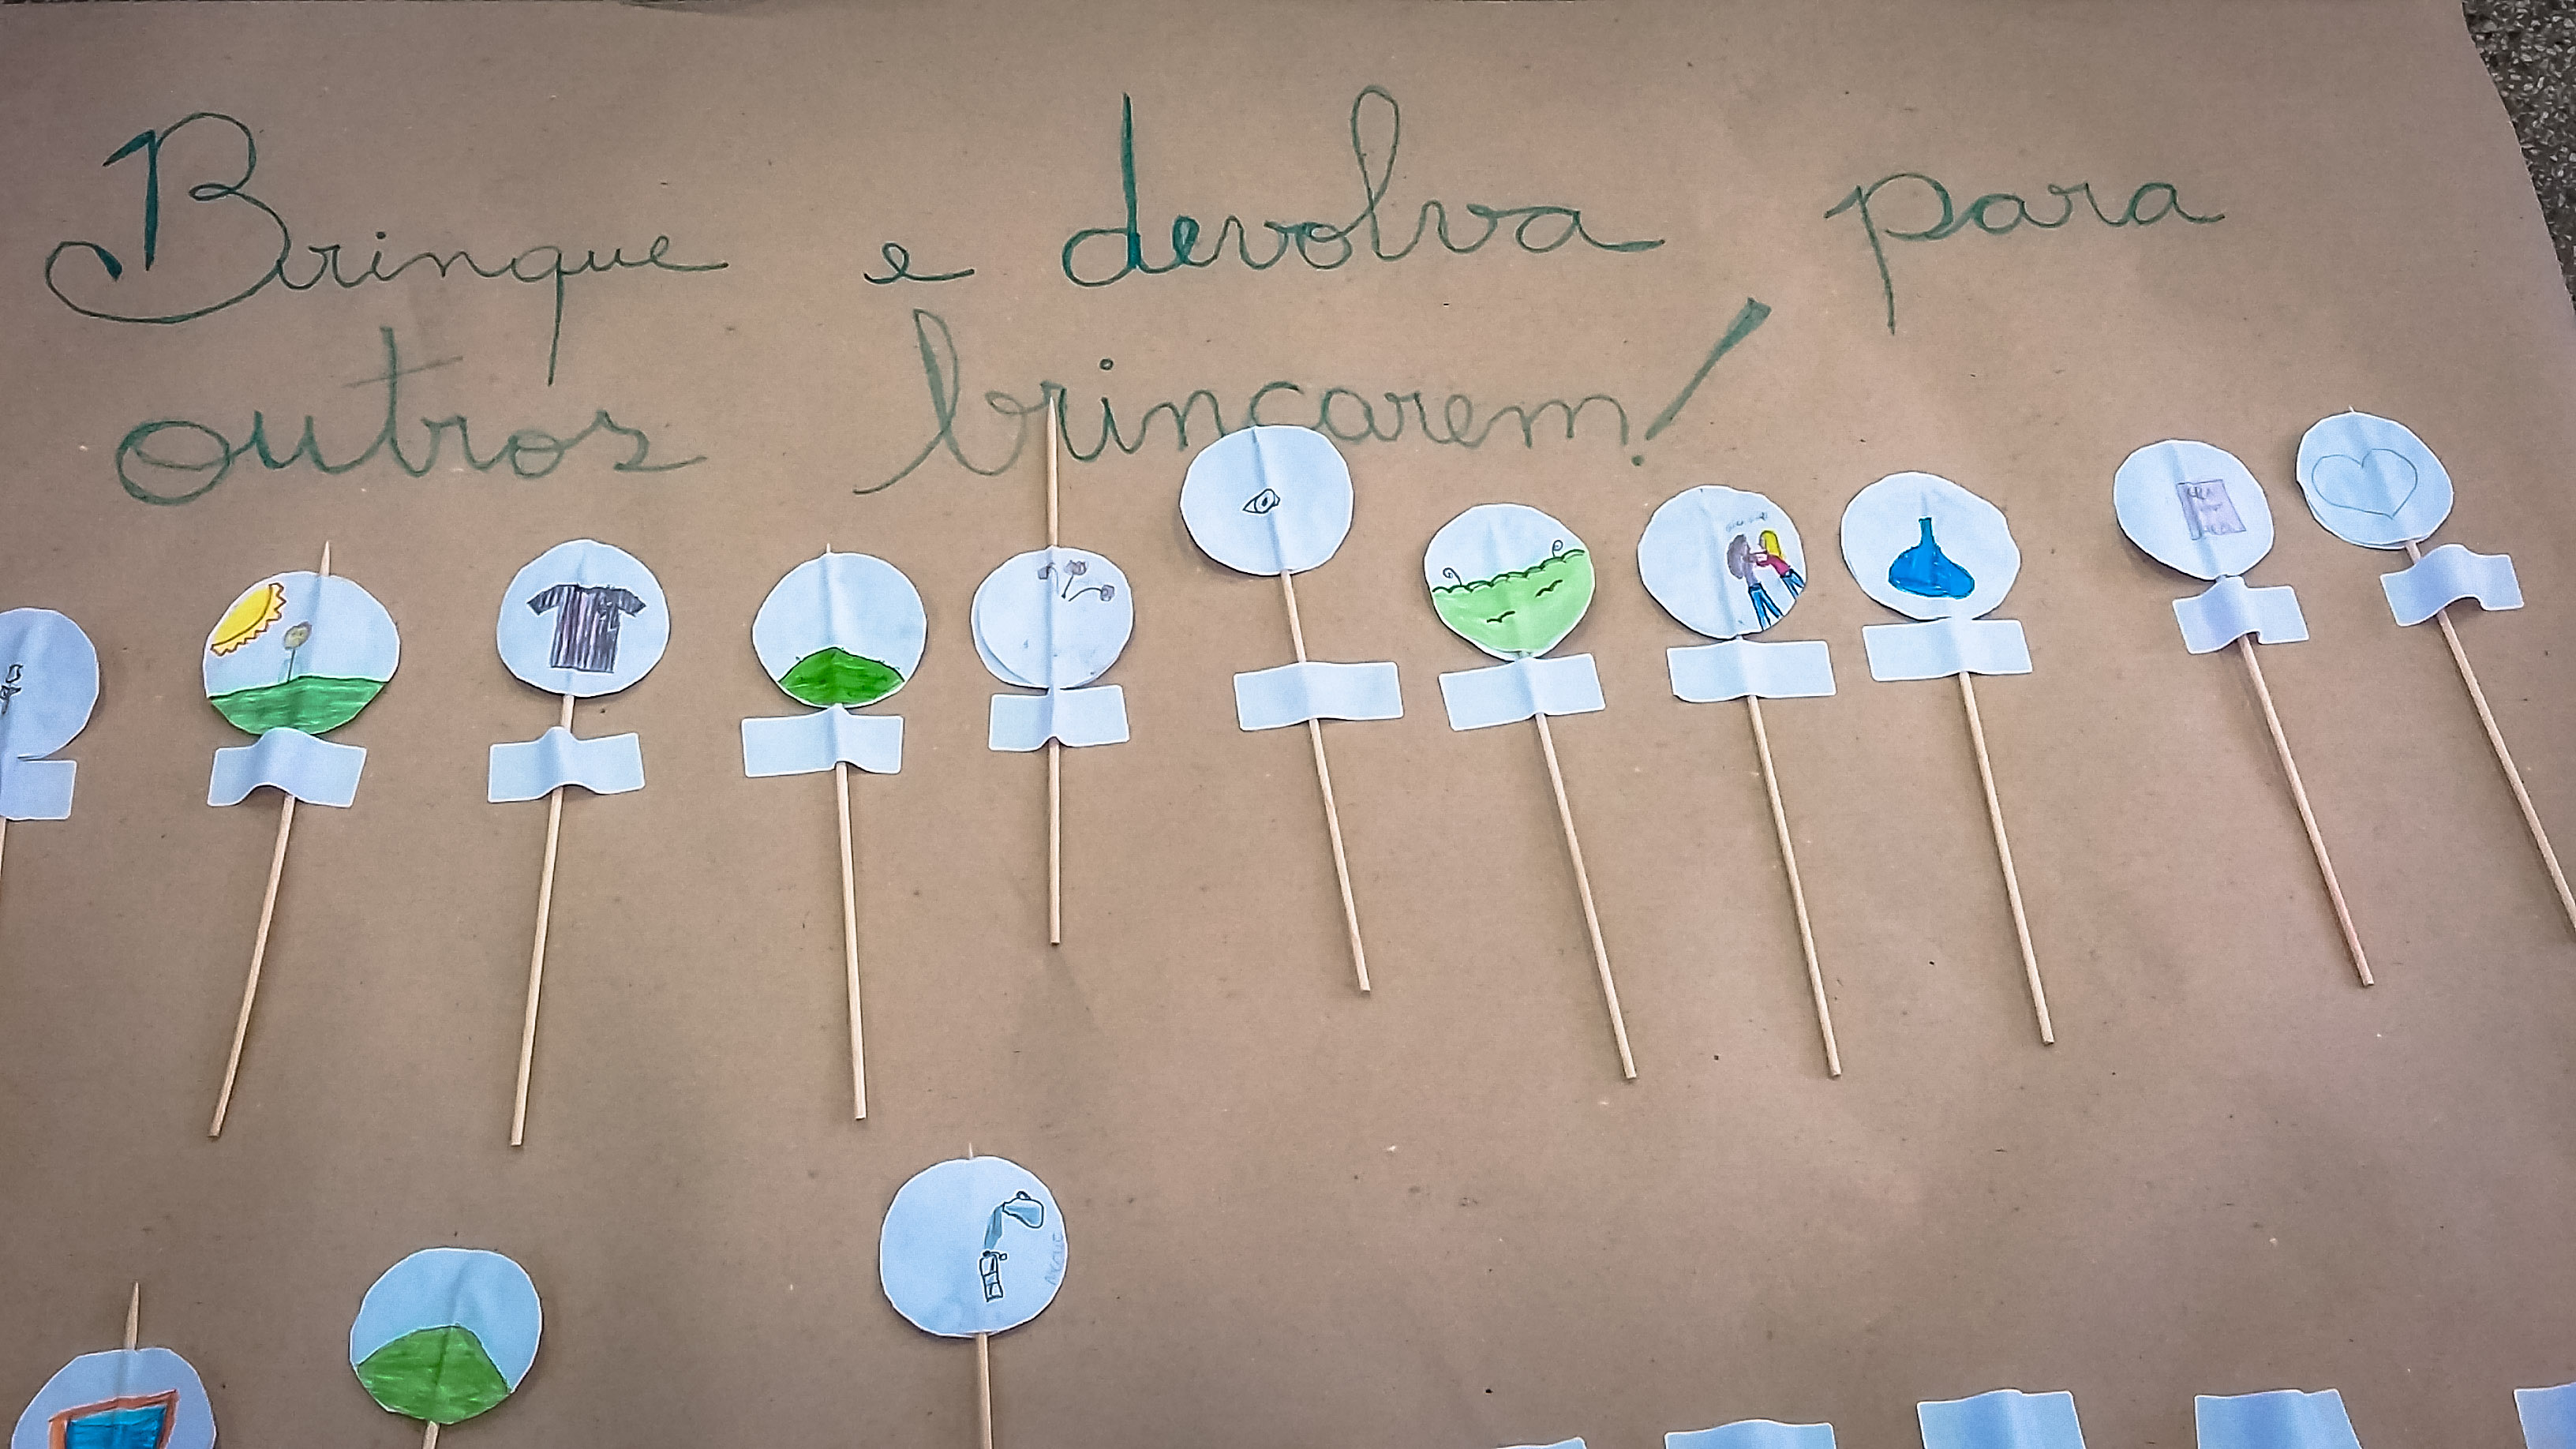 Brinque e devolva para
outros brincarem!